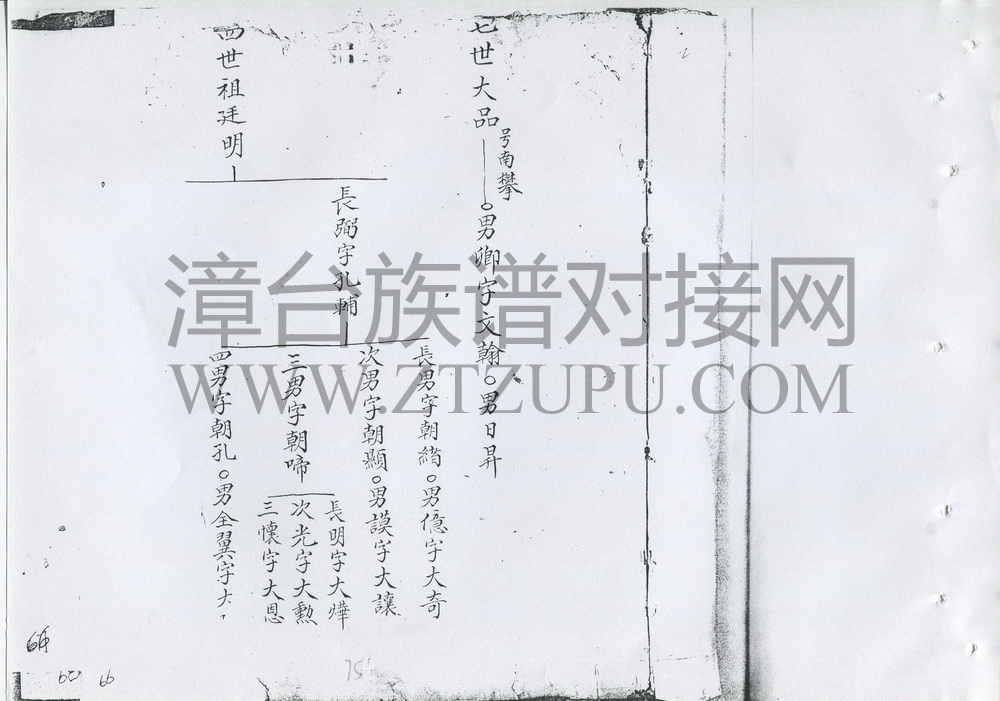 七世大品
号南攀
男卿字文翰○男日昇
四世祖廷明
長弼字孔輔
長男字朝緒○男億字大奇
次男字朝顯○男謨字大讓
三男字朝啼
長明字大燁
次光字大勲
三懷字大恩
四男字朝孔○男全翼字大
漳台族谱对接网
WWW.ZTZUPU.COM
75
66